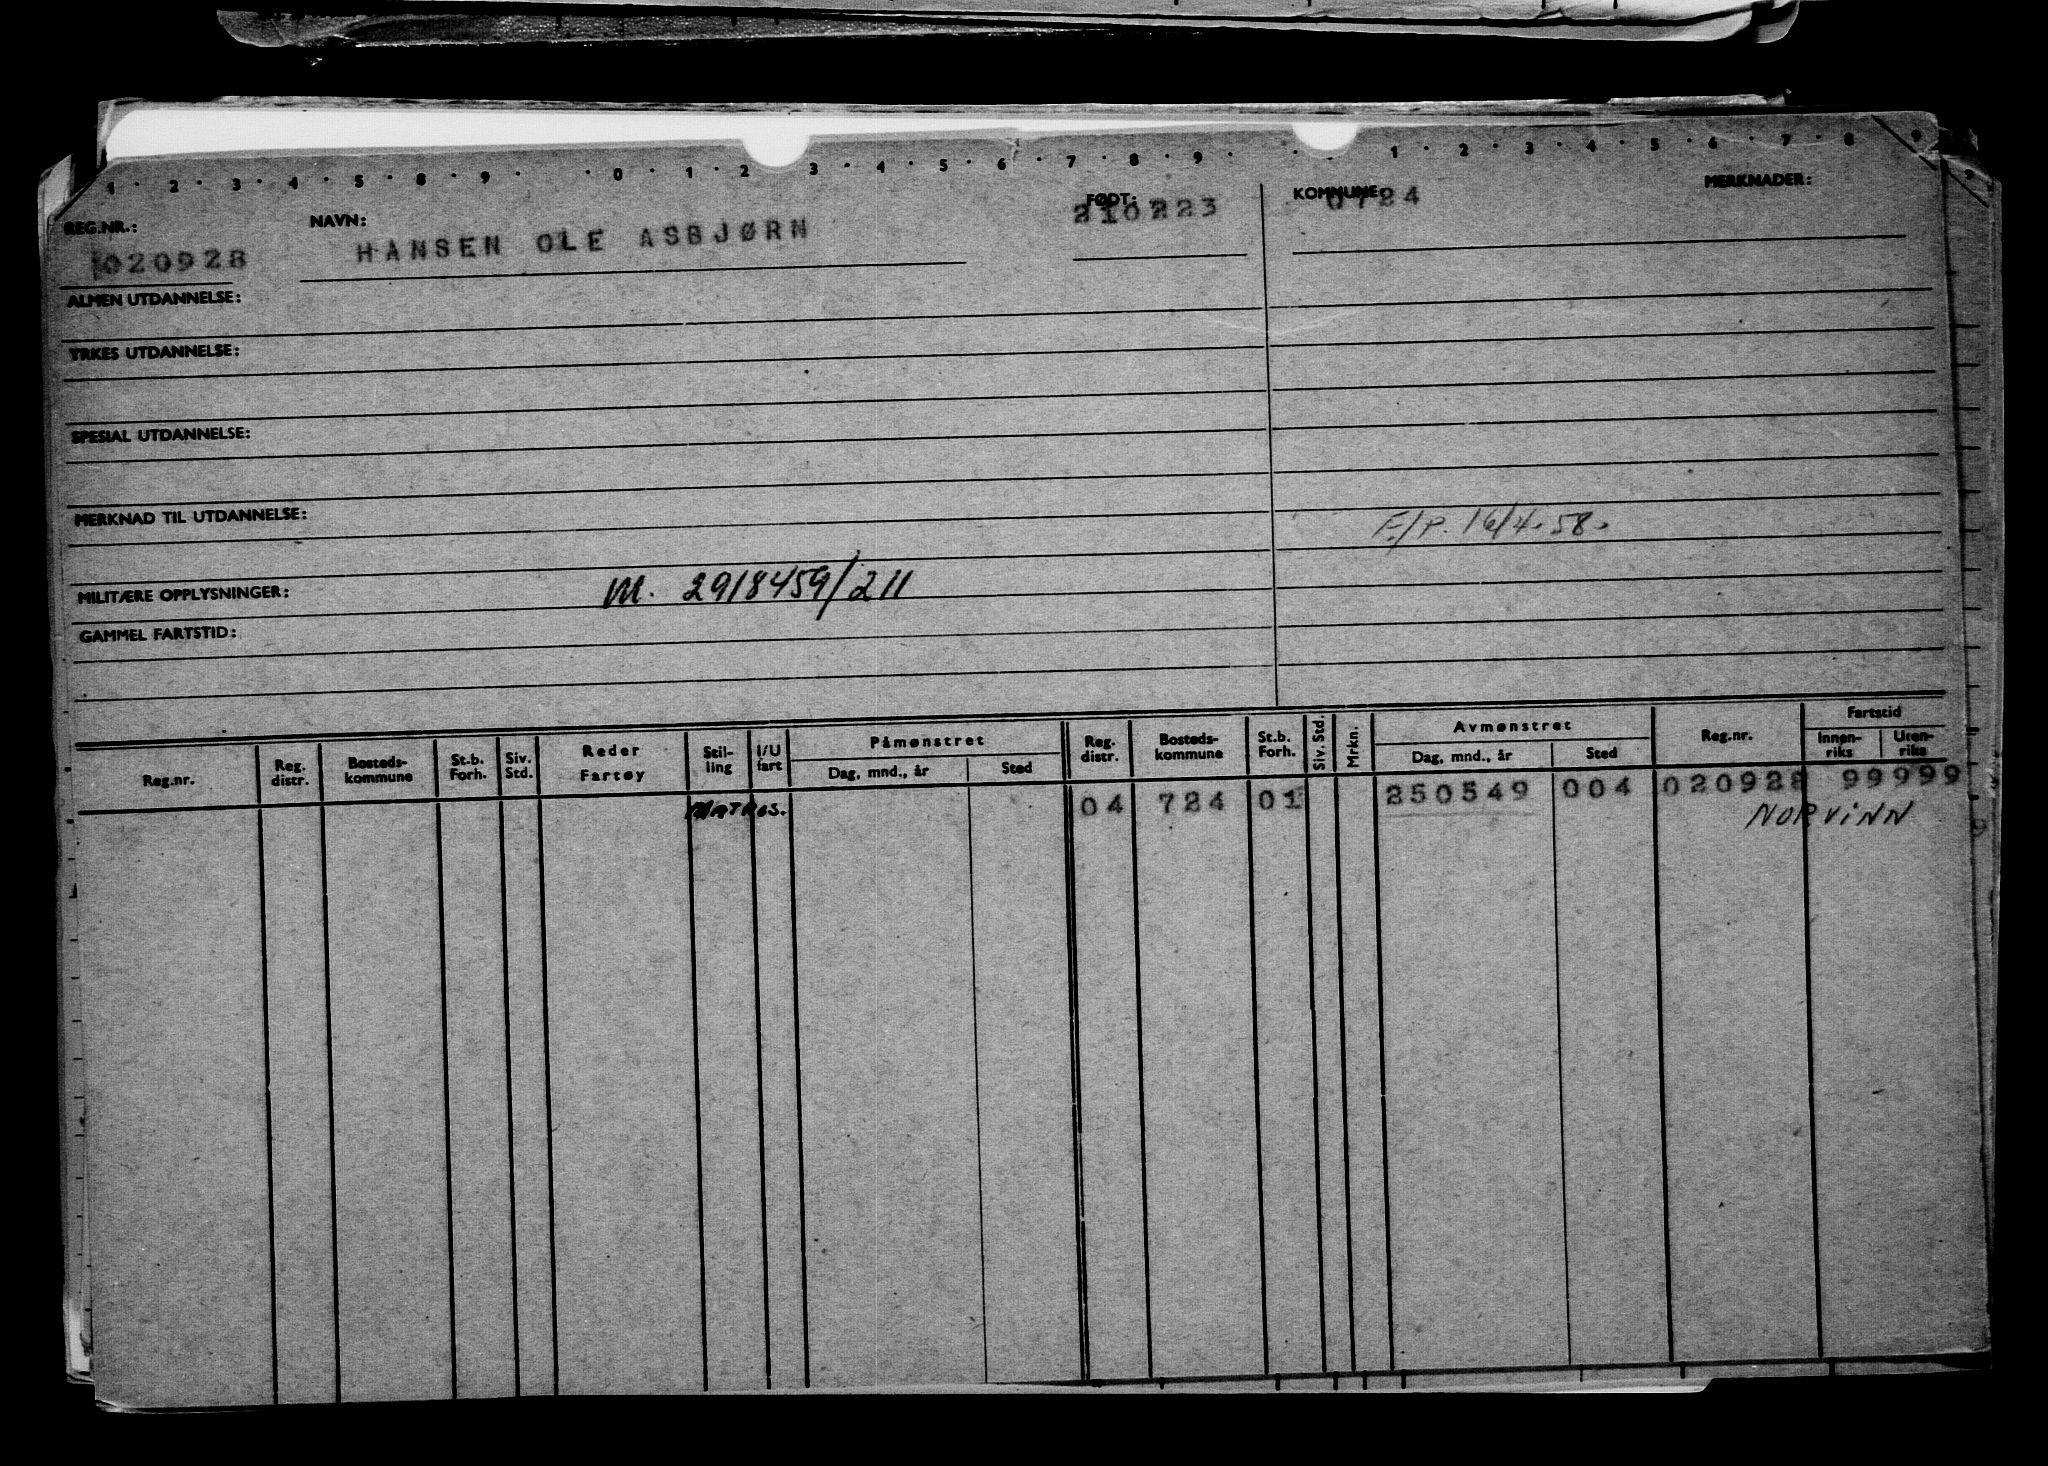 1 · 2 · 3 · 4 · 5 · 8 · 9 · · 0 · 1 · 2 3 · 4 · 5 · 6 · 7 · 8 · 9 · · · 1 · 2 · 3 · 4 · 5 · 6 · 7 · 8 · 9
REG.NR.: NAVN: FØDT: KOMMUNE: MERKNADER:
020928 HANSEN OLE ASBJØRN 210223 0724
ALMEN UTDANNELSE:
YRKES UTDANNELSE:
SPESIAL UTDANNELSE:
MERKNAD TIL UTDANNELSE:
F./P. 16/4.58.
MILITÆRE OPPLYSNINGER: M. 2918459/211
GAMMEL FARTSTID:
Reg.nr. Reg. distr. Bosteds- kommune St.b. Forh. Siv. Std. Reder Fartøy Stil- ling I/U fart Påmønstret Dag, mnd., år Sted Reg. distr. Bosteds- kommune St.b. Forh. Siv. Std. Mrkn. Avmønstret Dag, mnd., år Sted Reg.nr. Fartstid Innen- riks Uten- riks
MATROS. 04 724 01 250549 004 020928 99999
NORVINN